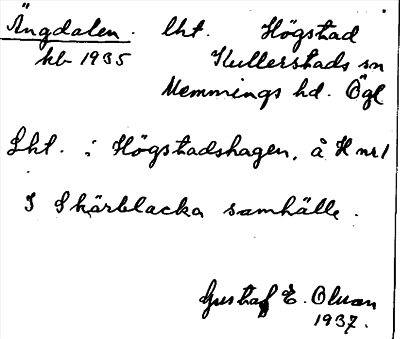 Ängdalen. lht. Högstad
kb 1935 Kullerstads sn
Memmings hd. Ögl
Lht. i Högstadshagen, å H nr 1
I Skärblacka samhälle.
Gustaf E. Olson
1937.